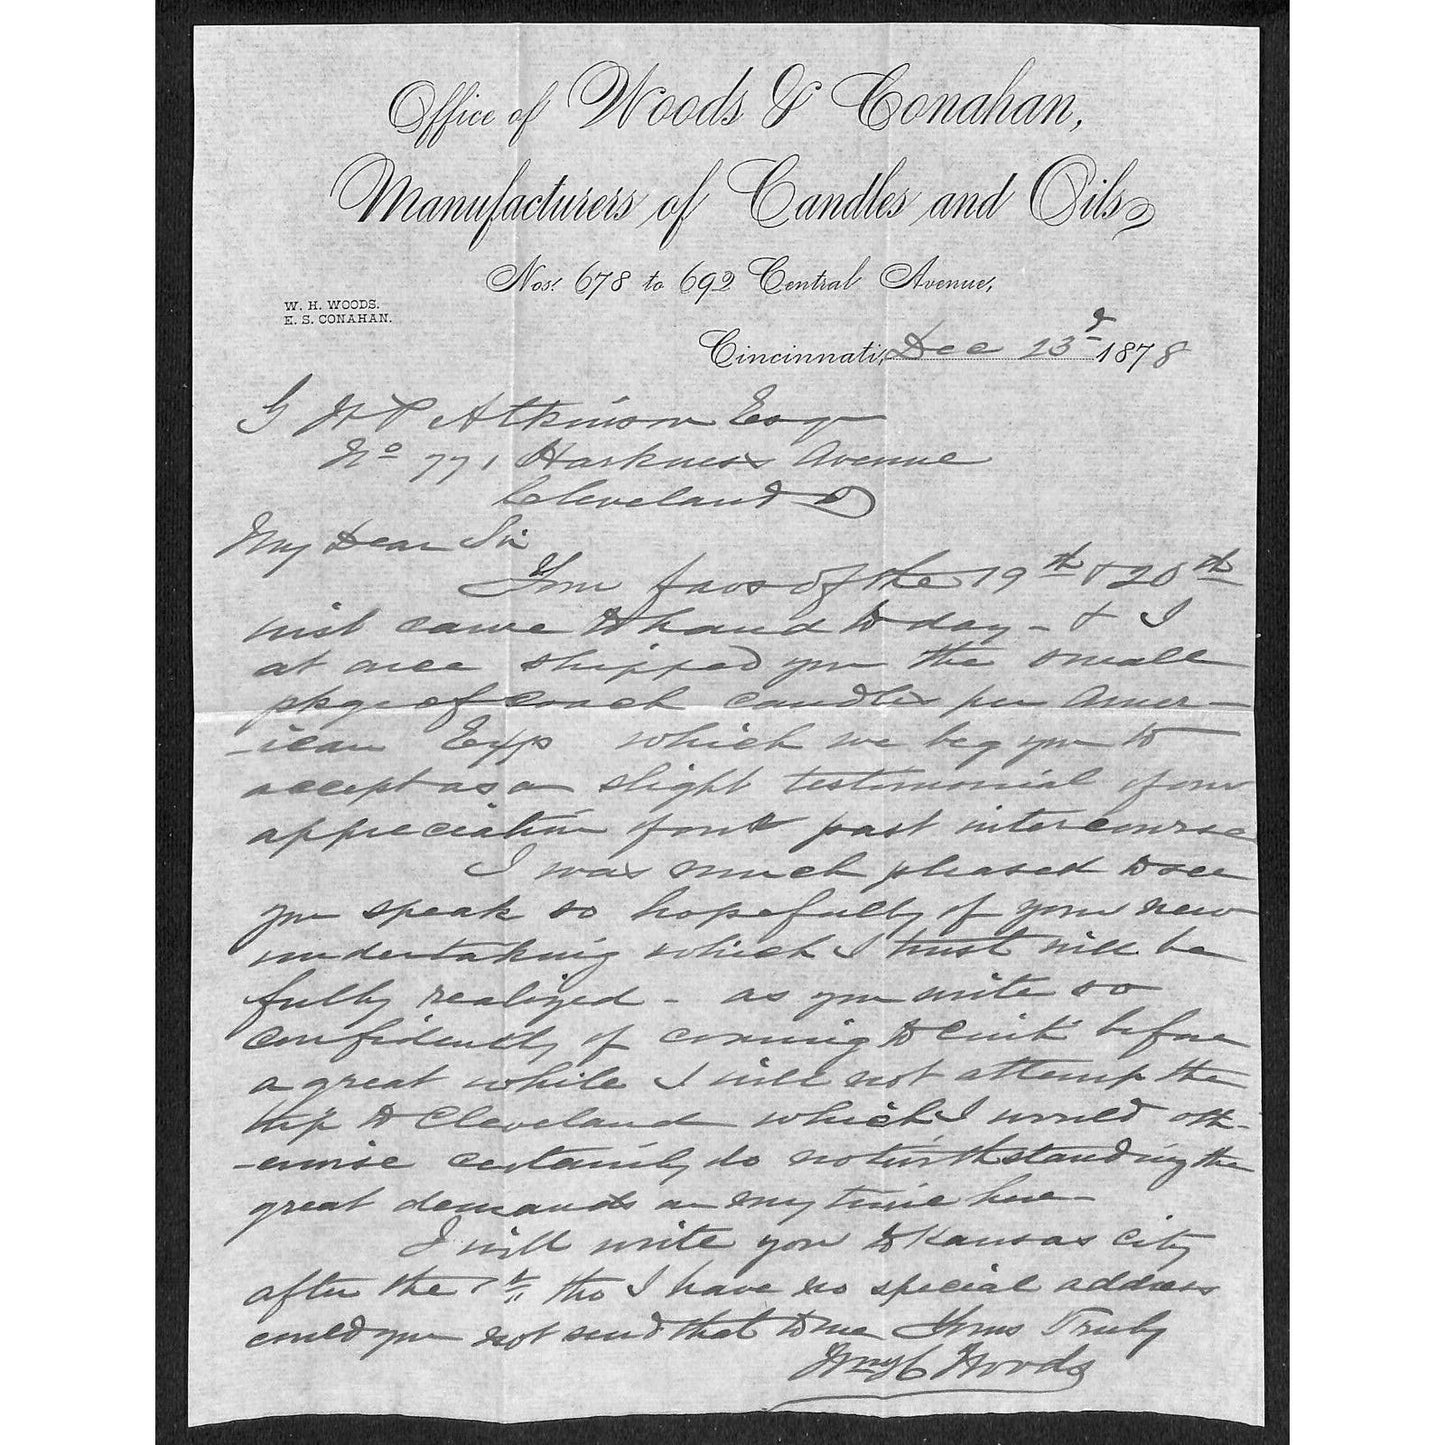 Office of Woods & Conahan,
Manufacturers of Candles and Oils,
Nos. 678 to 692 Central Avenue,
W. H. WOODS.
E. S. CONAHAN.
Cincinnati, Dec 23d 1878
G W P Atkinson Esq
No 771 Harkness Avenue
Cleveland O
My Dear Sir
Your favs of the 19th & 20th
inst came to hand to day - & I
at once shipped you the small
pkge of coach candles per Amer-
-ican Exp which we beg you to
accept as a slight testimonial of our
appreciation of our past intercourse
I was much pleased to see
you speak so hopefully of your new
undertaking which I trust will be
fully realized - as you write so
confidently of coming to Cinti before
a great while I will not attempt the
trip to Cleveland which I would oth-
-erwise certainly do notwithstanding the
great demands on my time here -
I will write you to Kansas City
after the 1st tho I have no special address
could you not send that to me Yours Truly
Wm H Woods